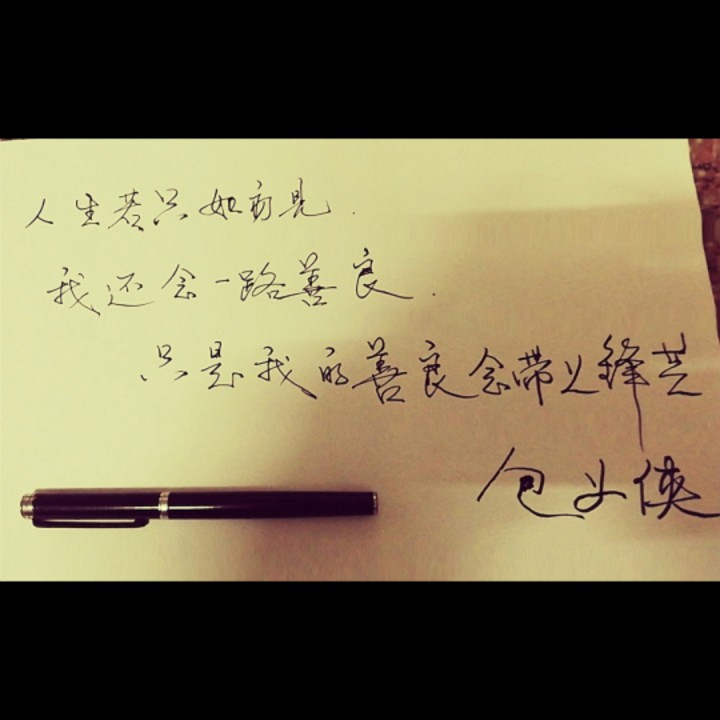 人生若只如初见.
我还会一路善良.
只是我的善良会带上锋芒
包上侠